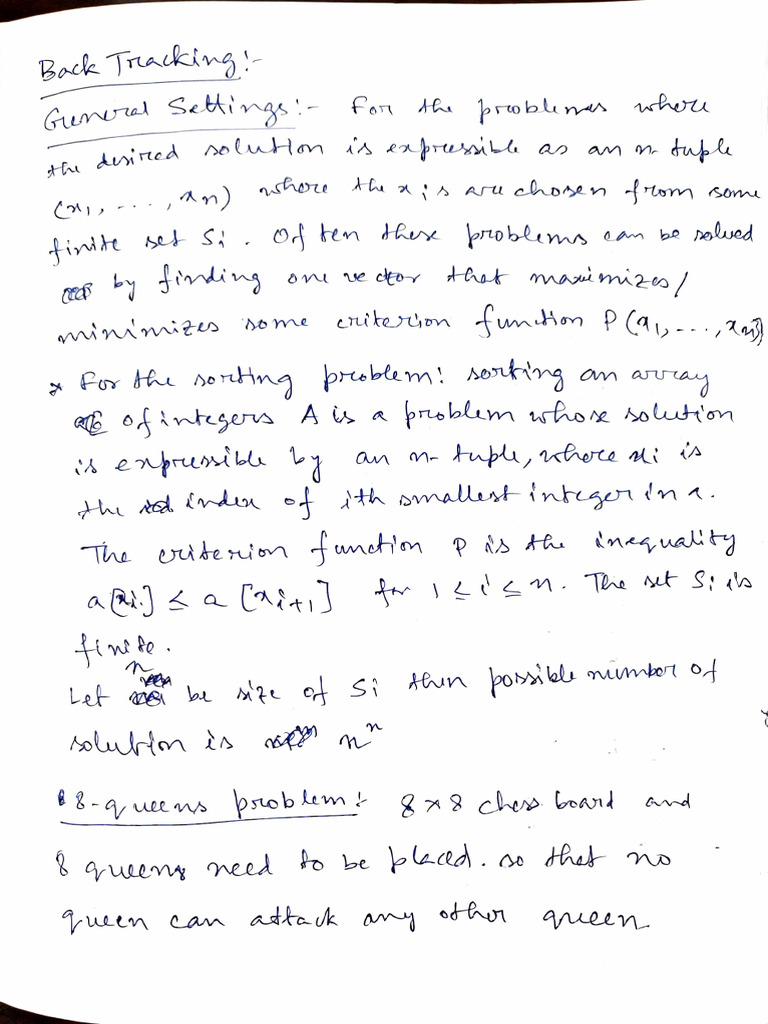 Back Tracking:-
General Settings:- For the problems where
the desired solution is expressible as an n-tuple
(x1, ..., xn) where the xis are chosen from some
finite set Si. Often these problems can be solved
by finding one vector that maximizes/
minimizes some criterion function P(x1, ..., xn)
* For the sorting problem: sorting an array
of integers A is a problem whose solution
is expressible by an n-tuple, where xi is
the index of ith smallest integer in a.
The criterion function P is the inequality
a[xi] ≤ a[xi+1] for 1 ≤ i ≤ n. The set Si is
finite.
n
Let be size of Si then possible number of
solution is n^n
8-queens problem:- 8×8 chess board and
8 queens need to be placed. so that no
queen can attack any other queen